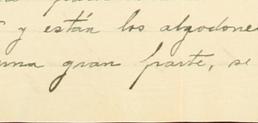 y están los algodone
una gran parte, se